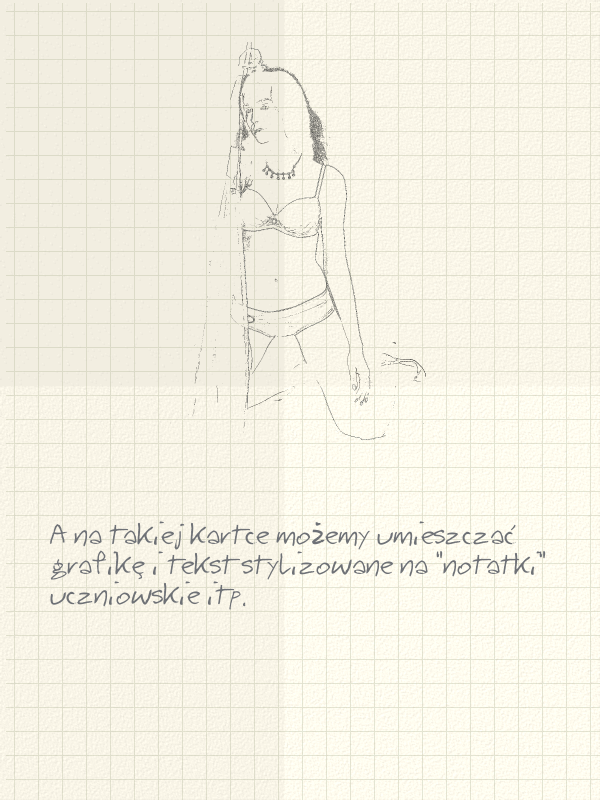 A na takiej kartce możemy umieszczać
grafikę i tekst stylizowane na "notatki"
uczniowskie itp.